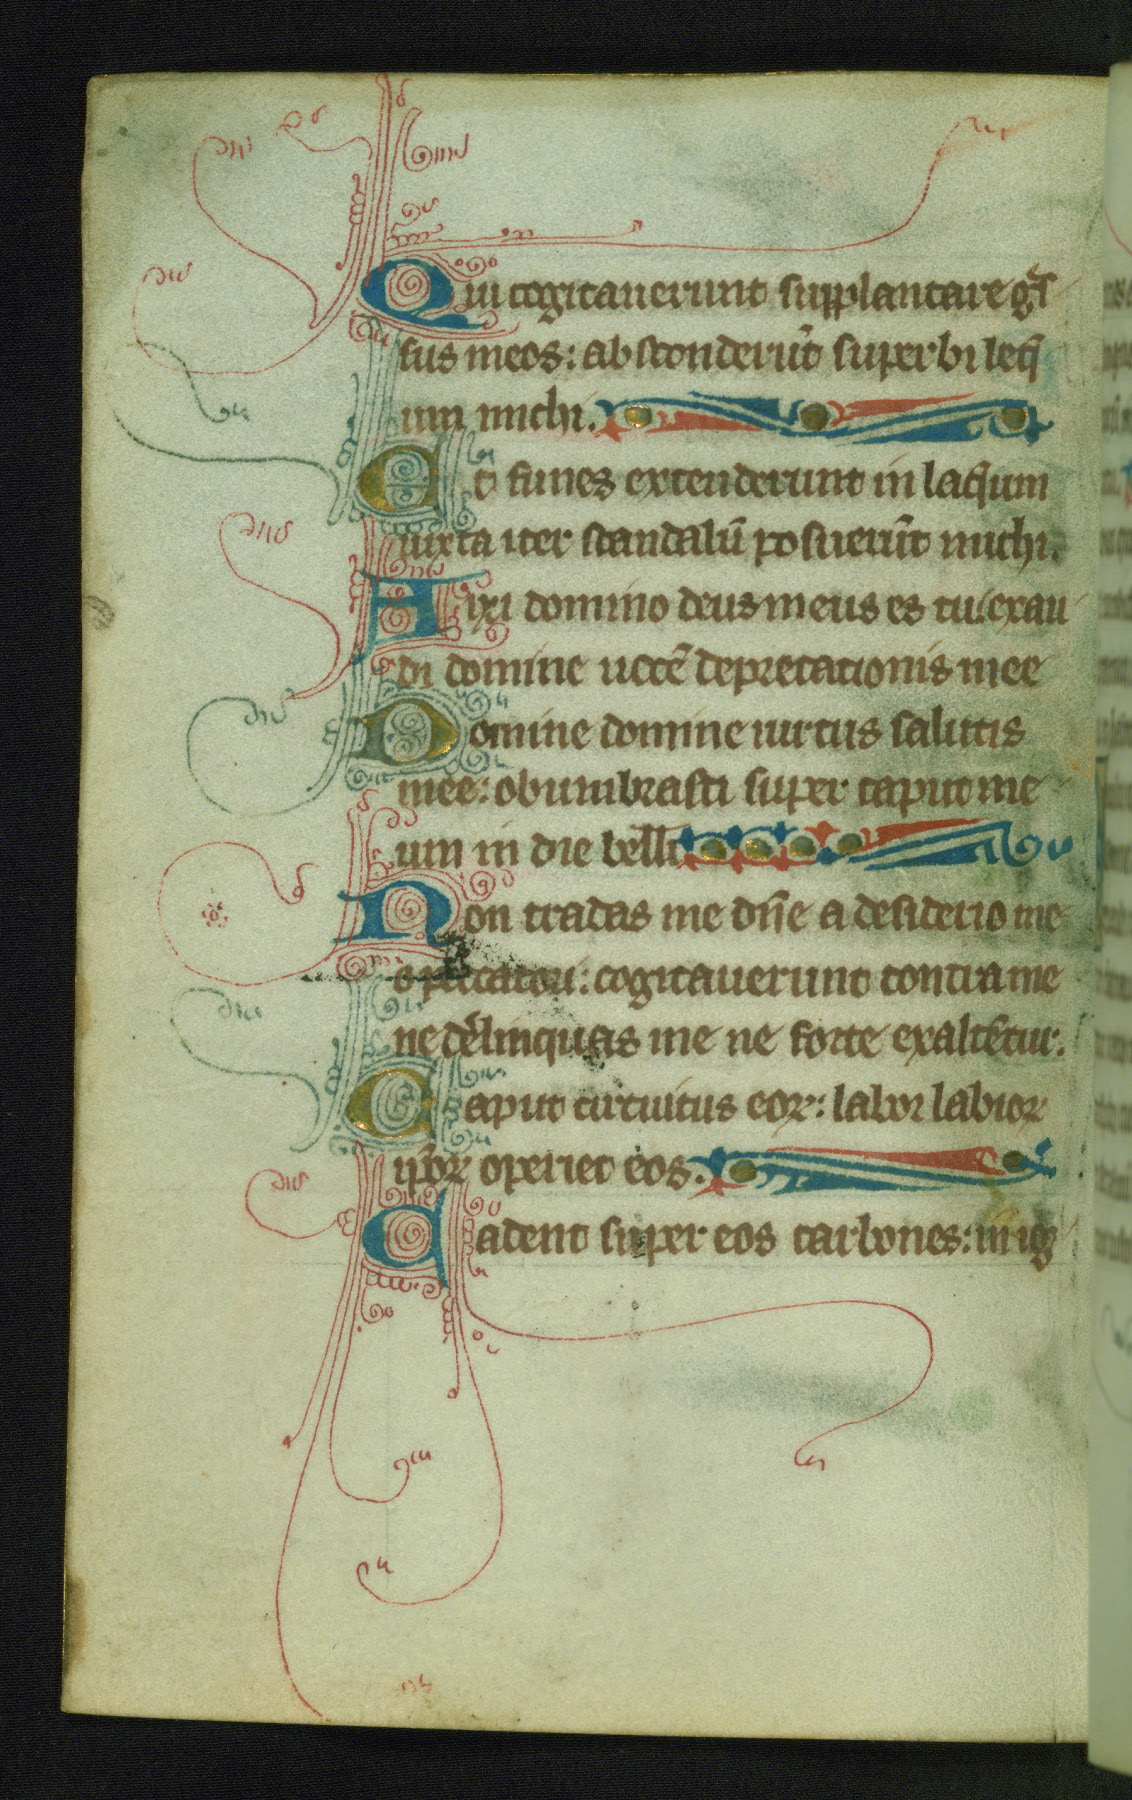 Qui cogitauerunt supplantare g̃s
sus meos: absconderũt superbi laq̃
um michi.
Et funes extenderunt in laq̃um
iuxta iter scandalũ posuerũt michi.
Dixi domino deus meus es tu: exau
di domine uocẽ deprecationis mee
Domine domine uirtus salutis
mee: obumbrasti super caput me
um in die belli
Non tradas me dñe a desiderio me
o peccatori: cogitauerunt contra me
ne derelinquas me ne forte exaltẽtur.
Caput circuitus eoꝝ: labor labioꝝ
ip̃oꝝ operiet eos.
Cadent super eos carbones: in ig